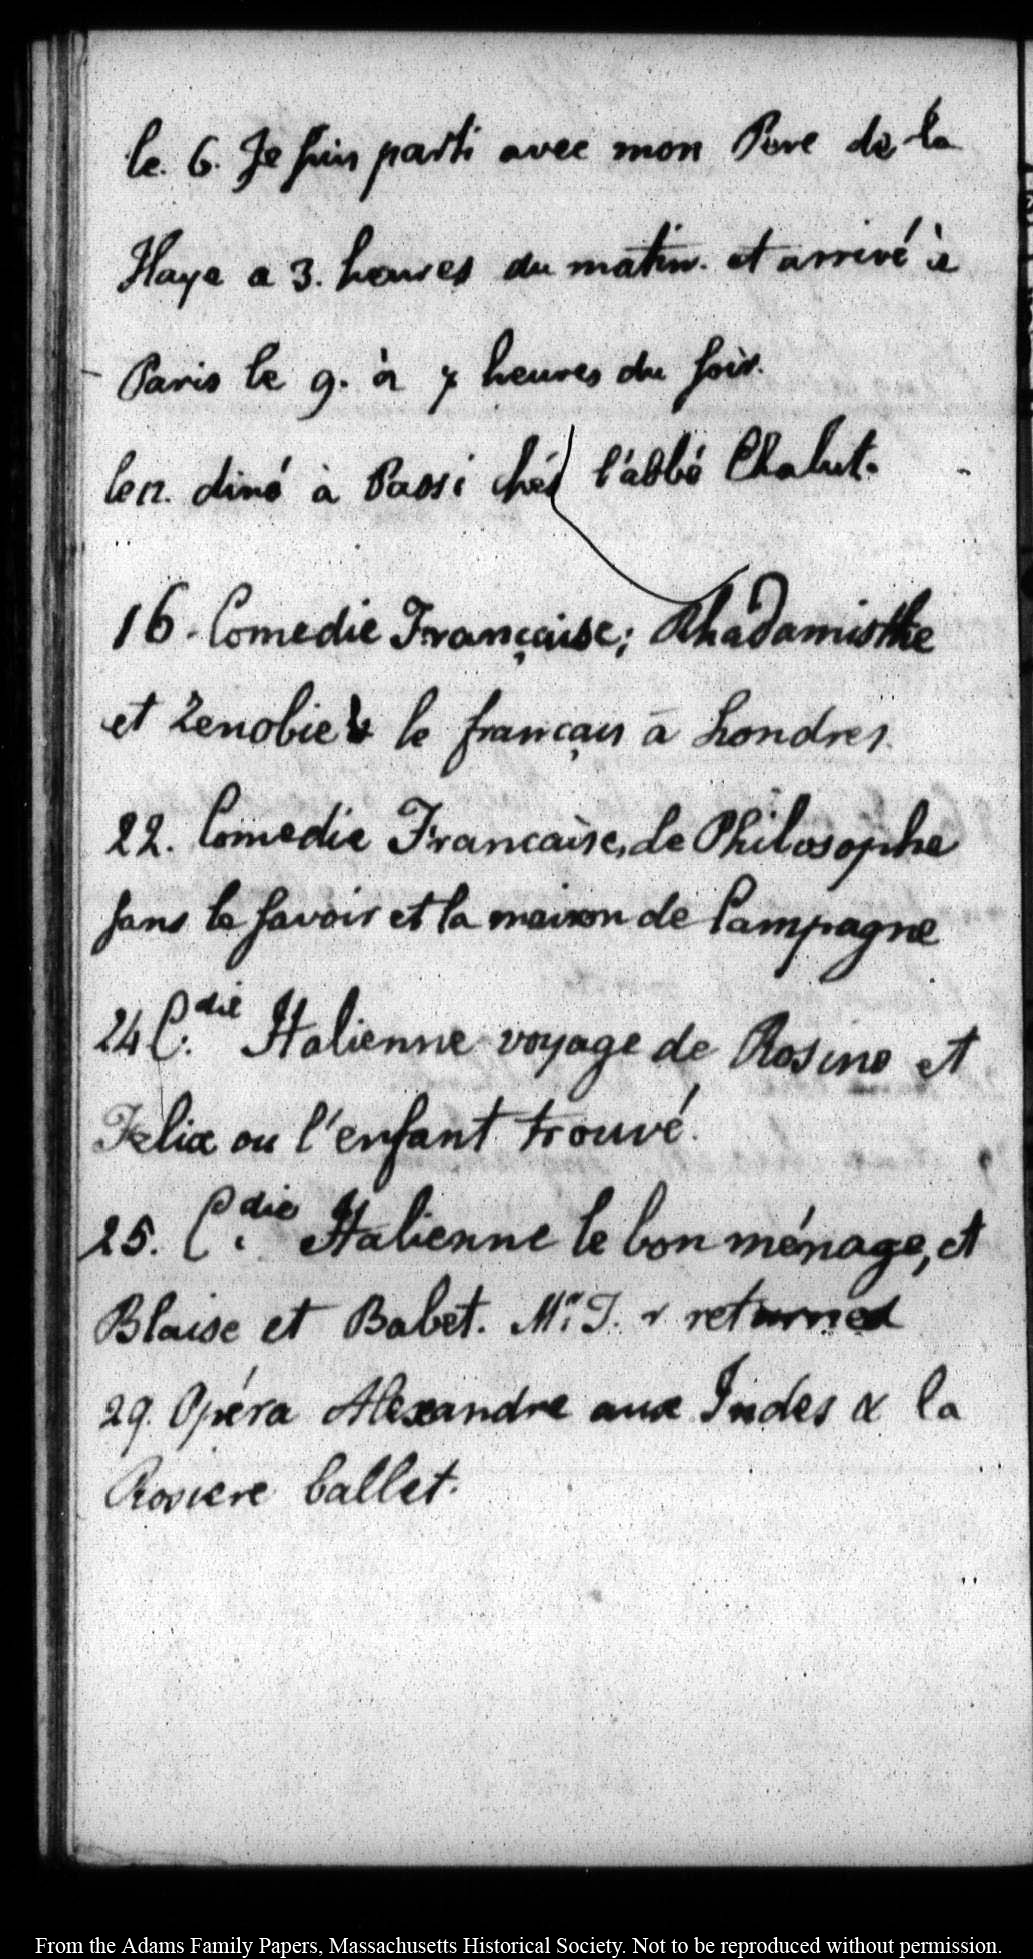 le. 6. Je suis parti avec mon Pere de la
Haye a 3. heures du matin. et arrivé à
Paris le 9. à 7 heures du soir.
le 12. diné à Passi chés l'abbé Chalut.
16. Comedie Française; Rhadamisthe
et Zenobie le français à Londres.
22. Comedie Francaise, le Philosophe
sans le savoir et la maison de Campagne
24 C.die Italienne voyage de Rosine et
Felix ou l'enfant trouvé.
25. C.die Italienne le bon ménage, et
Blaise et Babet. Mr. T. r returned
29. Opéra Alexandre aux Indes & la
Rosiere ballet.
From the Adams Family Papers, Massachusetts Historical Society. Not to be reproduced without permission.